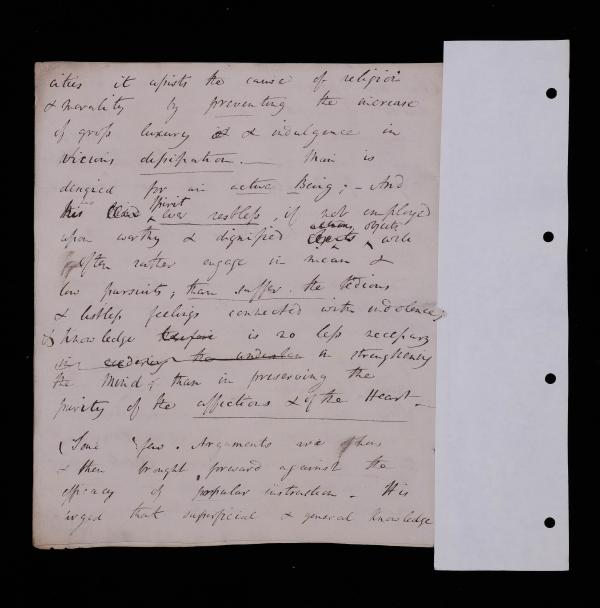 cities it assists the cause of religion
& morality by preventing the increase
of gross luxury & indulgence in
vicious dissipation. — Man is
designed for an active Being; – And
his spirit ever restless, if not employed
upon worthy & dignified actions, objects will
often rather engage in mean &
low pursuits, than suffer the tedious
& listless feelings connected with indolence,
& knowledge is no less necessary
in strengthening
the Mind, than in preserving the
purity of the affections & of the Heart —
(Some few Arguments are
& then brought forward against the
efficacy of popular instruction. It is
urged that superficial & general knowledge